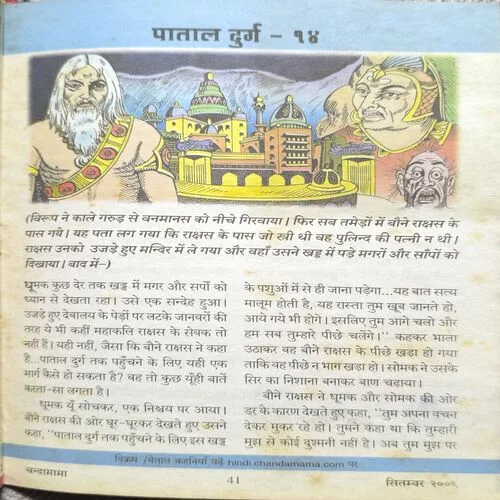 पाताल दुर्ग - १४
(विरूप ने काले गरुड़ से वनमानस को नीचे गिरवाया। फिर सब तमेड़ों में बौने राक्षस के
पास गये। यह पता लग गया कि राक्षस के पास जो स्त्री थी वह पुलिन्द की पत्नी न थी।
राक्षस उनको उजड़े हुए मन्दिर में ले गया और वहाँ उसने खड्ड में पड़े मगरों और साँपों को
दिखाया। बाद में-)
धूमक कुछ देर तक खड्ड में मगर और सर्पों को
ध्यान से देखता रहा। उसे एक सन्देह हुआ।
उजड़े हुए देवालय के पेड़ों पर लटके जानवरों की
तरह ये भी कहीं महाकलि राक्षस के सेवक तो
नहीं हैं। यही नहीं, जैसा कि बौने राक्षस ने कहा
है...पाताल दुर्ग तक पहुँचने के लिए यही एक
मार्ग कैसे हो सकता है? वह तो कुछ यूँही बातें
करता-सा लगता है।
धूमक यूँ सोचकर, एक निश्चय पर आया।
बौने राक्षस की ओर घूर-घूरकर देखते हुए उसने
कहा, "पाताल दुर्ग तक पहुँचने के लिए इस खड्ड
के पशुओं में से ही जाना पड़ेगा...यह बात सत्य
मालूम होती है, यह रास्ता तुम खूब जानते हो,
आये गये भी होगे। इसलिए तुम आगे चलो और
हम सब तुम्हारे पीछे चलेंगे।" कहकर भाला
उठाकर वह बौने राक्षस के पीछे खड़ा हो गया
ताकि वह पीछे न भाग खड़ा हो। सोमक ने उसके
सिर का निशाना बनाकर बाण चढ़ाया।
बौने राक्षस ने धूमक और सोमक की ओर
डर के कारण देखते हुए कहा, "तुम अपना वचन
देकर मुकर रहे हो। तुमने कहा था कि तुम्हारी
मुझ से कोई दुश्मनी नहीं है। अब तुम मुझ पर
विक्रम /बेताल कहानियाँ पढ़ें hindi.chandamama.com पर
चन्दामामा
41
सितम्बर २००२